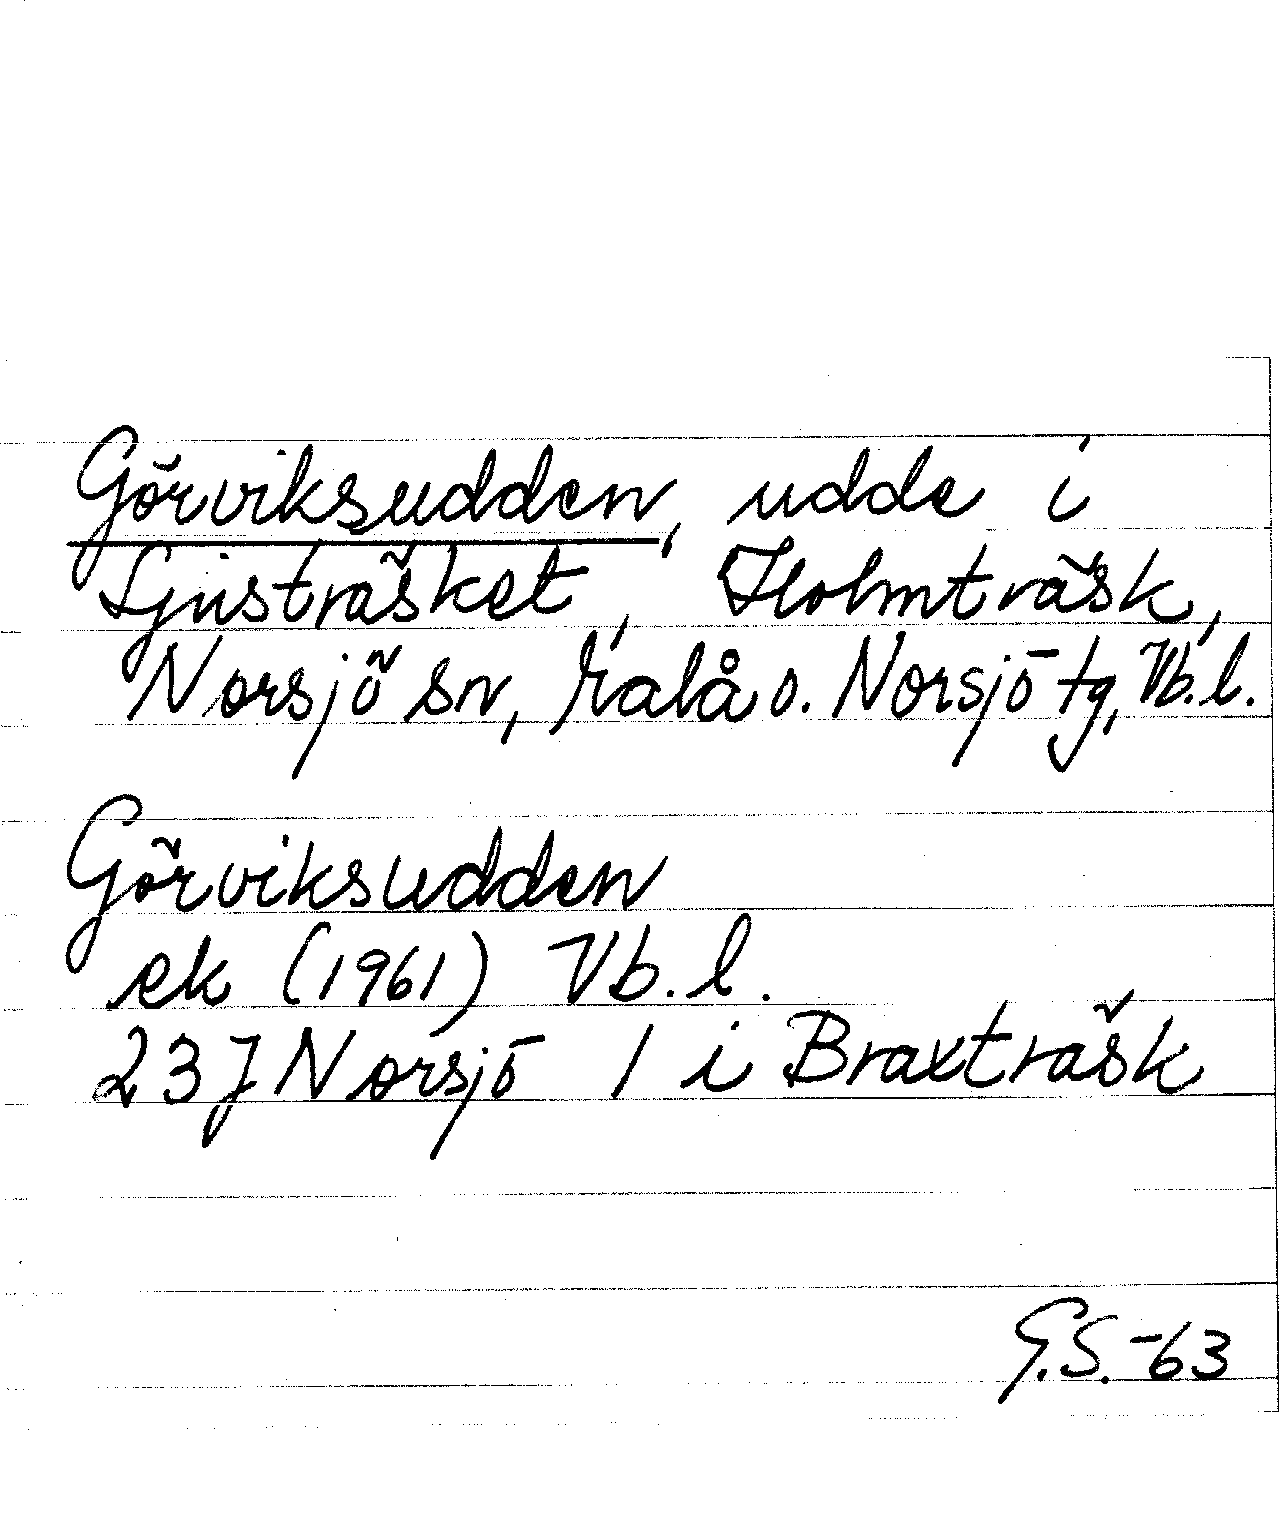 Görviksudden, udde i
Ljusträsket, Holmträsk,
Norsjö sn, Malå o. Norsjö tg, Vb.l.
Görviksudden
ek (1961) Vb.l.
23J Norsjö 1 i Braxträsk
G.S.-63